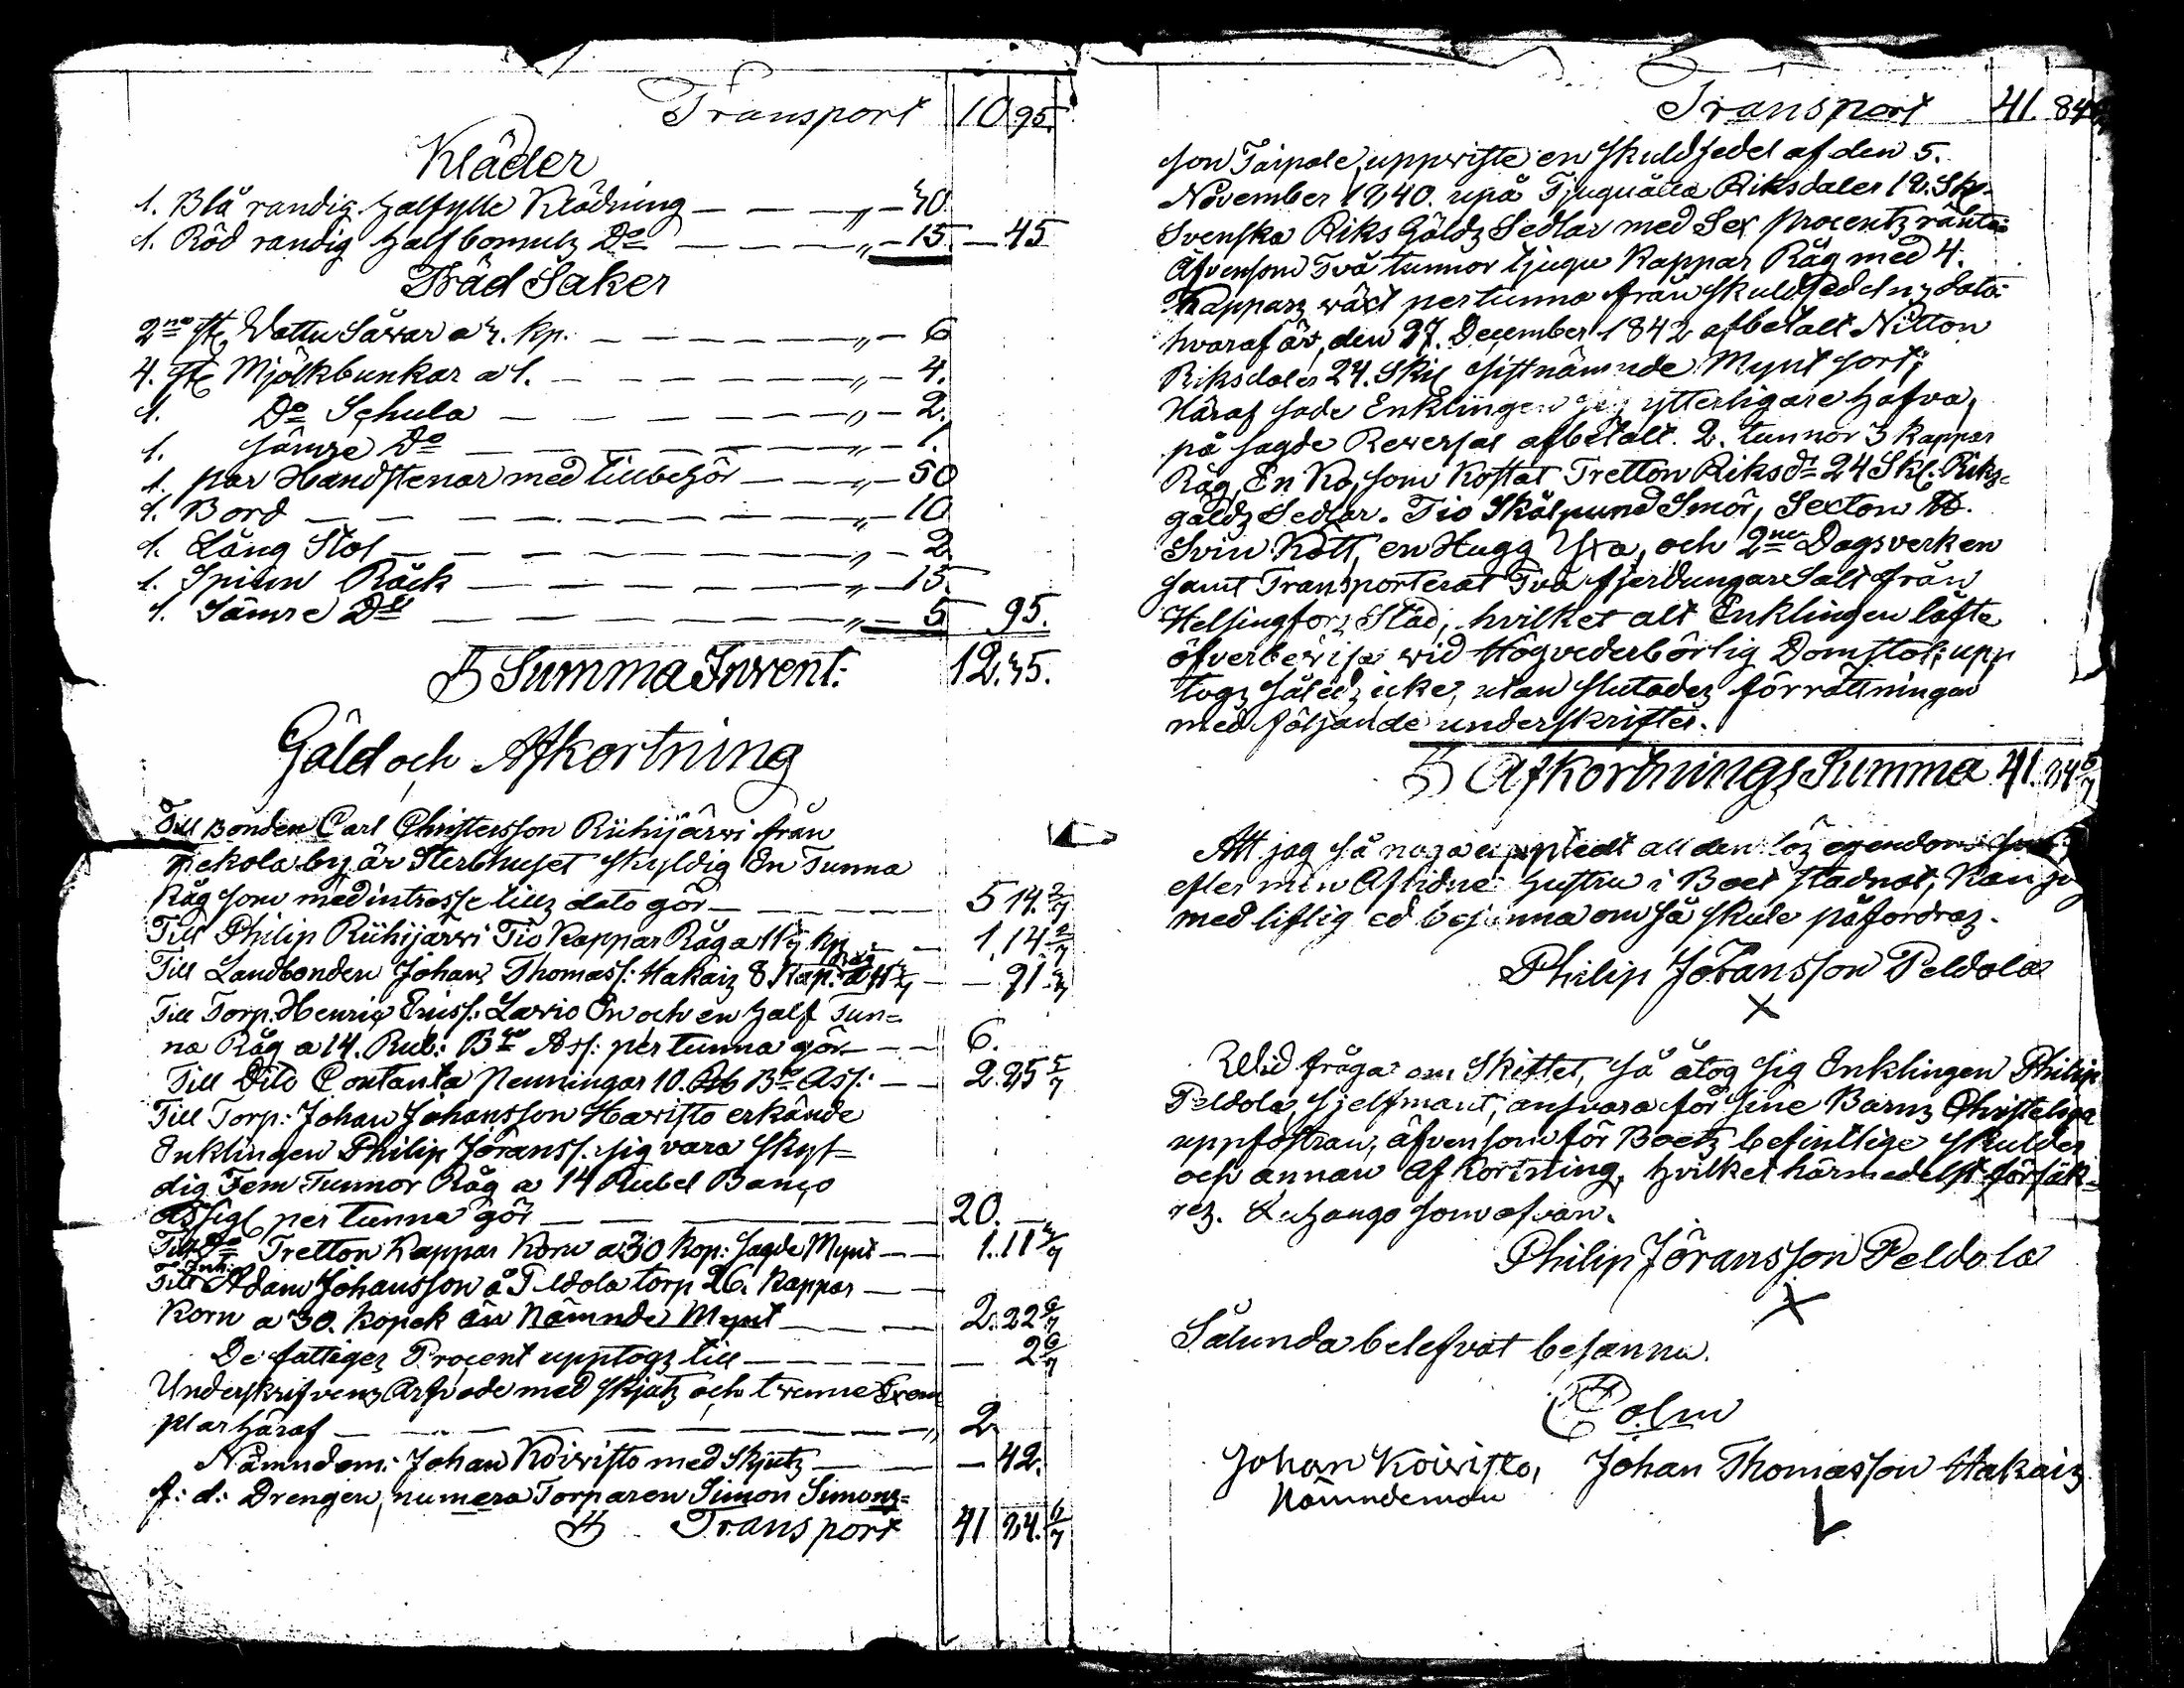 Transport 10 95.
Kläder
1. Blå randig halfylle Klädning — — — „ — 30.
1. Röd randig halfbomulz Do — — — „ — 15. — 45
Träd Saker
2ne st. Vattu Såwar a 3. kp. — — — — — „ — 6
4. st. Mjölkbunkar a 1. — — — — — „ — 4.
1. Do Schula — — — — — „ — 2.
1. sämre Do — — — — — „ — 1.
1. par Handstenar med tillbehör — — „ — 50
1. Bord — — — — — — „ — 10
1. Lång Stol — — — — — — „ — 2
1. Spinn Råck — — — — — „ — 15.
1. Sämre Do — — — — — „ — 5 95.
Summa Invent: 12. 35.
Gäld och Afkortning
Till Bonden Carl Christersson Riihijärwi från
Pekola by är Sterbhuset skyldig En Tunna
Råg som med intresse tillz dato gör — — — — 5 14. 2/7
Till Philip Riihijärwi Tio Kappar Råg a kp — — 1. 14 2/7
Till Landbonden Johan Thomass: Hakaiz 8 Kap: Råg a — — 91
Till Torp. Henric Ericss: Lawio En och en half Tun=
na Råg a 14. Rub: Bco Ass: per tunna gör — — 6.
Till Dito Contanta Penningar 10. Rb Bco Ass: — — 2. 85 5/7
Till Torp: Johan Johansson Hawisto erkände
Enklingen Philip Jöranss. sig vara skyl=
dig Fem Tunnor Råg a 14 Rubel Banco
Assigl per tunna gör — — — — — 20. —
Till Do Tretton Kappar Korn a 30 Kop: sagde Mynt — — 1. 11 3/7
Till Inh: Adam Johansson å Peldola torp 26. Kappar — —
Korn a 30. Kopek än Nämnde Mynt — — — 2. 22 6/7
De fattigez Procent upptogz till — — — — — 2 6/7
Underskrifvenz Arfvode med skjutz och trenne Exem
plar häraf — — — — — — „ 2
Nämndem: Johan Koivisto med Skjutz — — — 42.
f: d: Drengen, numera Torparen Simon Simonz=
Transport 41 84. 6/7
Transport 41. 84 6/7
son Taipale, uppwiste en skuldsedel af den 5.
November 1840. upå Tjuguåtta Riksdaler 12. Sk.
Svenska Riks Gäldz Sedlar med Sex procentz ränta
Äfvensom Två tunnor tjugu Kappar Råg med 4.
Kapparz wäxt per tunna från skuldsedelnz dato:
hvaraf är, den 27. December 1842 afbetalt Nitton
Riksdaler 24. Skil sistnämnde Mynt sort;
Häraf sade Enklingen sig ytterligare hafva,
på sagde Reversal afbetalt. 2. tunnor 3 kappar
Råg, En Ko, som Kostat Tretton Riksdr 24 Skl. Rikz-
gäldz Sedlar. Tio Skålpund Smör, Sexton ℔.
Svin Kött, en Hugg Yxa, och 2ne Dagsverken
samt Transporterat Två fjerdungar Salt från
Helsingforz Stad, hvilket alt Enklingen låfte
öfverbewisa wid Högvederbörlig Domstol; upp
togz såledz icke, utan slutadez förrättningen
med följande underskrifter.
Afkortningz Summa 41. 84 6/7
Att jag så noga upptedt all den löz egendom
efter min Aflidne Hustru i Boet stadnat, Kan jag
med liflig ed besanna om så skule påfordraz.
Philip Jöransson Peldola
X
Wid frågar om Skiftet, så åtog sig Enklingen Philip
Peldola, sjelfmant, ansvara för sine Barnz Christeliga
uppfostran, äfvensom för Boetz befintlige skulder
och annan Af Kortning, hvilket härmedelst försäk=
rez. som ofvan.
Philip Jöransson Peldola
X
Sålunda belefvat besanna.
Polm
Johan Koivisto, Johan Thomasson Hakaiz
Nämndeman